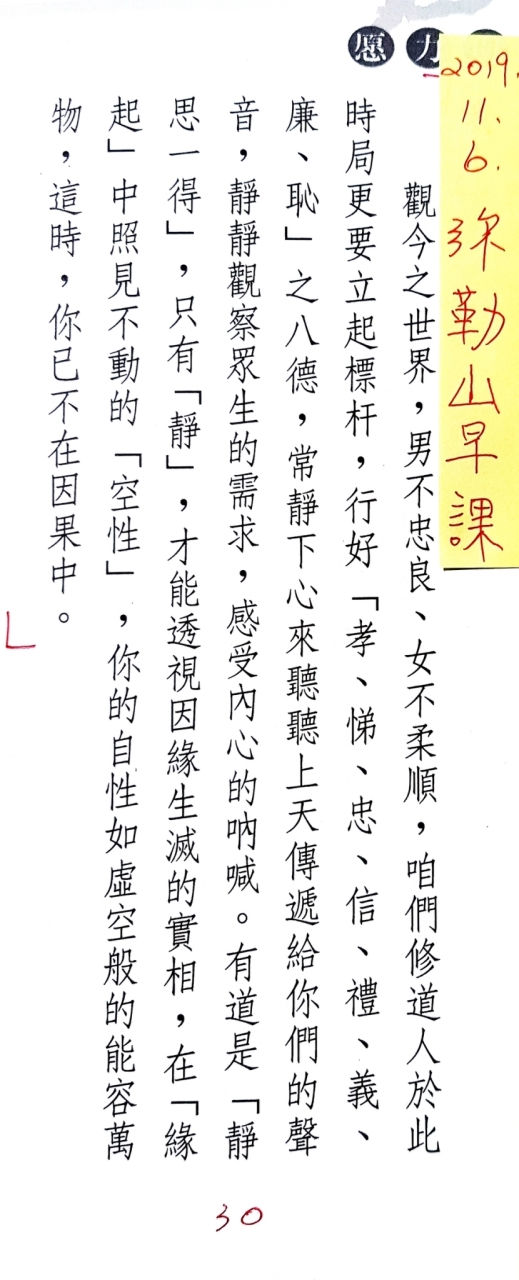 愿力
2019.
11.
6.
弥勒山早課
觀今之世界，男不忠良、女不柔順，咱們修道人於此
時局更要立起標杆，行好「孝、悌、忠、信、禮、義、
廉、恥」之八德，常靜下心來聽聽上天傳遞給你們的聲
音，靜靜觀察眾生的需求，感受內心的吶喊。有道是「靜
思一得」，只有「靜」，才能透視因緣生滅的實相，在「緣
起」中照見不動的「空性」，你的自性如虛空般的能容萬
物，這時，你已不在因果中。
30